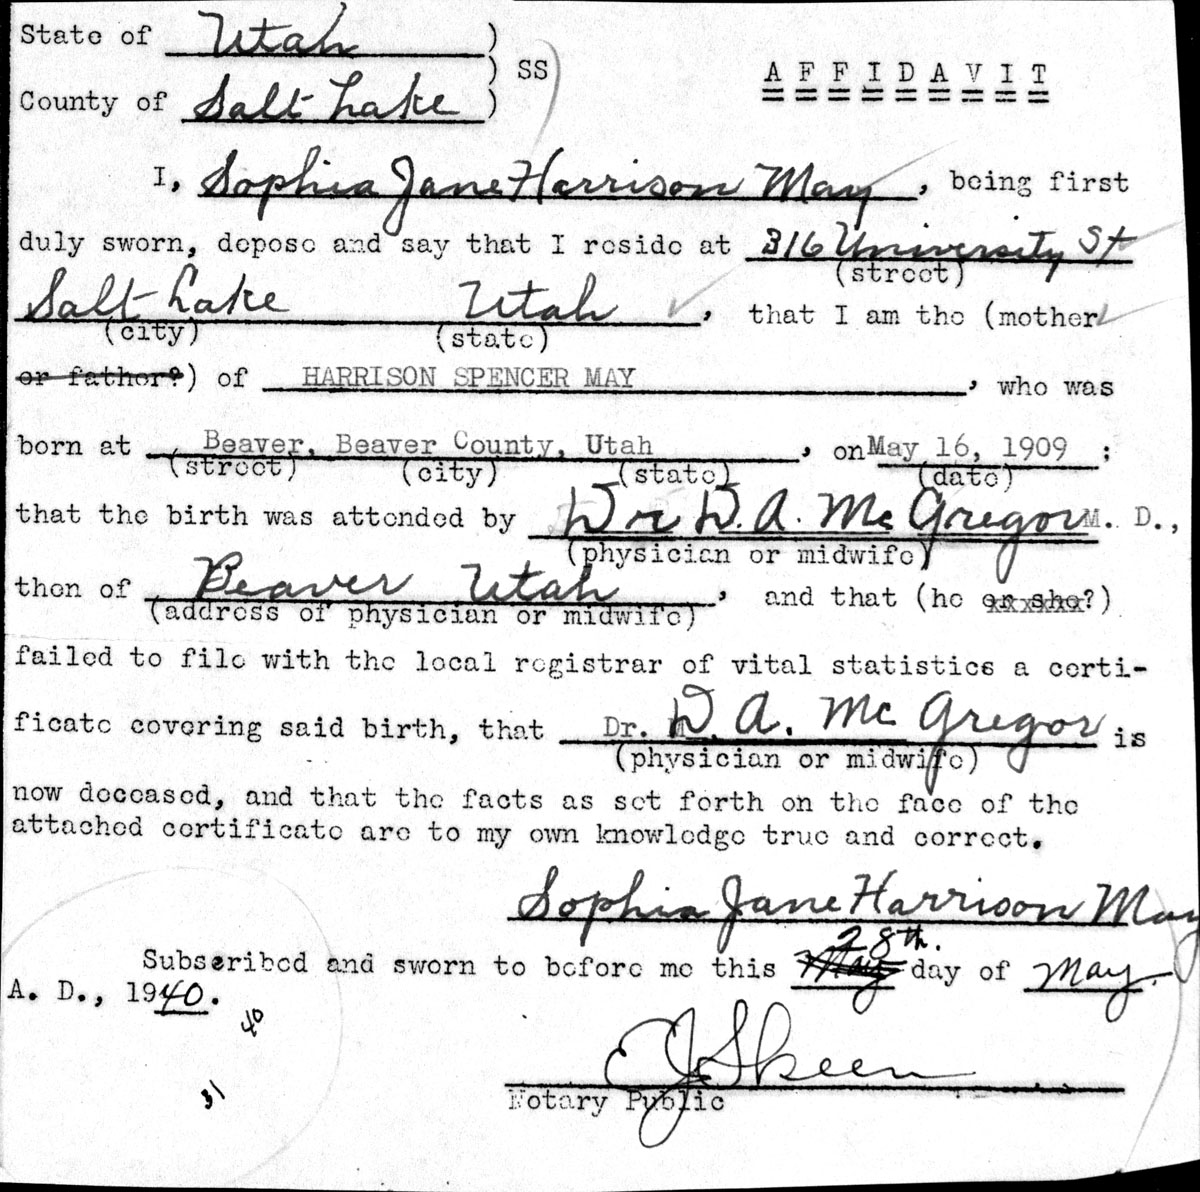 State of Utah )
) SS ) A F F I D A V I T
County of Salt Lake )
I, Sophia Jane Harrison May, being first
duly sworn, depose and say that I reside at 316 University St
(street)
Salt Lake Utah, that I am the (mother
(city) (state)
or father?) of HARRISON SPENCER MAY, who was
born at Beaver, Beaver County, Utah, on May 16, 1909;
(street) (city) (state) (date)
that the birth was attended by Dr D. A. Mc Gregor M. D.,
(physician or midwife)
then of Beaver Utah, and that (he or she?)
(address of physician or midwife)
failed to file with the local registrar of vital statistics a certi-
ficate covering said birth, that Dr. D. A. Mc Gregor is
(physician or midwife)
now deceased, and that the facts as set forth on the face of the
attached certificate are to my own knowledge true and correct.
Sophia Jane Harrison May
28th.
Subscribed and sworn to before me this May day of May.
A. D., 1940.
40
E J Skeen
31
Notary Public